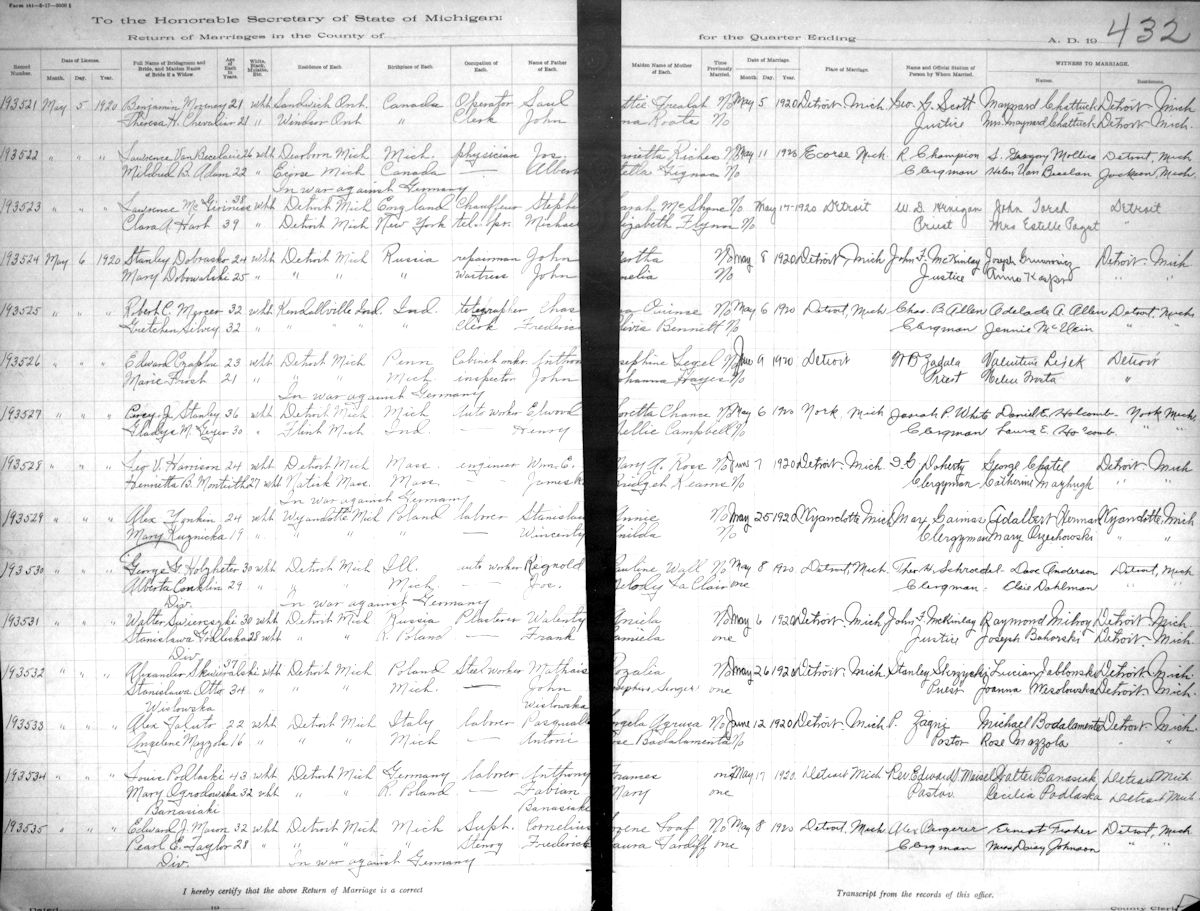 Form 161—6-17—5000 S
To the Honorable Secretary of State of Michigan:
432
Return of Marriages in the County of for the Quarter Ending A. D. 19
Record Number. Date of License. Full Name of Bridegroom and Bride, and Maiden Name of Bride if a Widow. Age of Each in Years. White, Black, Mulatto, Etc. Residence of Each. Birthplace of Each. Occupation of Each. Name of Father of Each. Maiden Name of Mother of Each. Time Previously Married. Date of Marriage. Place of Marriage. Name and Official Station of Person by Whom Married. WITNESS TO MARRIAGE.
Month. Day. Year. Month. Day. Year. Names. Residence.
193521 May 5 1920 Benjamin 21 wht Sandwich Ont. Canada Operator Saul No May 5 1920 Detroit Mich Geo. G. Scott Maynard Chattuck Detroit Mich
Theresa H. Chevalier 21 " Windsor Ont " Clerk John Roata No Justice Mrs Maynard Chattuck Detroit Mich.
193522 " " " Lawrence Van Becelaire 26 wht Dearborn Mich Mich. physician Jos. No May 11 1920 Ecorse Mich. R. Champion Detroit, Mich
Mildred B. Adam 22 " Ecorse Mich Canada — Albert No Clergman Helen Van Jackson Mich.
In war against Germany
193523 " " " Lawrence Mc 38 wht Detroit Mich England Chauffeur Stephe arah McShane No May 17 1920 Detroit W. D. Henigan John Detroit
Clara A. Hart 39 " Detroit Mich New York tel. opr. Michael lizabeth Flynn No Priest Mrs Estelle Paget "
193524 May 6 1920 Stanley Dobrasko 24 wht Detroit Mich Russia repairman John artha No May 8 1920 Detroit Mich John F. McKinlay Joseph Detroit Mich
Mary Dobowlski 25 " " " " waitress John nelia No Justice Anna " "
193525 " " " Robert C. Mercer 32 wht Kendallville Ind. Ind. telegrapher Chas No May 6 1920 Detroit, Mich Chas. B. Allen Adelade A. Allen Detroit, Mich
Gretchen Selvey 32 " " " " Clerk Frederic Bennett No Clergman Jennie " "
193526 " " " Edward 23 wht Detroit Mich Penn Cabinet Anthon sephine No June 9 1920 Detroit Valentine Detroit
Marie 21 " " " Mich inspector John ohanna Hayes No Priest Helen "
In war against Germany
193527 " " " Percy J. Stanley 36 wht Detroit Mich Mich auto worker Elwood oretta Chance No May 6 1920 York, Mich Josiah P. White Daniel E. Holcomb. York Mich
Gladys M. Geyer 30 " Flint Mich Ind. — Henry ellie Campbell No Clergman Laura E. Holcomb. " "
193528 " " " Leo V. Harrison 24 wht Detroit Mich Mass. engineer Wm. E. ary A. Ross No June 7 1920 Detroit Mich Doherty George Detroit Mich
Henrietta B. Monteith 27 wht Natick Mass. Mass. — James ridget Kearns No Clergyman Catherine " "
In war against Germany
193529 " " " Alex 24 wht Wyandotte Mich Poland laborer Stanislau nnie No May 25 1920 Wyandotte Mich Max Adalbert Herman Wyandotte, Mich
Mary Kuznicka 19 " " " — Wincenty No Clergyman Mary Orzechowski " "
193530 " " " George G. Holzheter 30 wht Detroit Mich Ill. auto worker Reginold uline Wall No May 8 1920 Detroit, Mich. Theo. H. Schroedel Dave Anderson Detroit, Mich
Alberta Conklin 29 " " Mich. — Jos. La Clair one Clergman Claie Dahlman " "
Div. In war against Germany
193531 " " " Walter 30 wht Detroit Mich Russia Plasterer Walenty niela No May 6 1920 Detroit Mich John F. McKinlay Raymond Detroit Mich
Stanislawa 28 wht " " R. Poland — Frank amiela one Justice Joseph Bohorski Detroit Mich
Div.
193532 " " " Alexander 37 wht Detroit Mich Poland Steel worker Mathais ozalia No May 26 1920 Detroit Mich Stanley Skrzycki Lucian Jablonski Detroit Mich.
Stanislawa Otto 34 " " " Mich. — John one Priest Joanna Wislowska Detroit Mich
Wislowska Wislowska
193533 " " " Alex 22 wht Detroit Mich Italy laborer Pasquale ngela No June 12 1920 Detroit Mich P. Zagni Michael Badalamente Detroit Mich
Angelene Mazzola 16 " " " Mich — Antoni ose Badalamenta No Pastor Rose Mazzola " "
193534 " " " Louis Podlaski 43 wht Detroit Mich Germany laborer Anthony rances one May 17 1920 Detroit Mich Rev Edward D. Walter Banasiak Detroit Mich
Mary Ogrodowska 32 wht " " R. Poland — Fabian Mary one Pastor Cecilia Podlaska Detroit Mich.
Banasiaki Banasiaki
193535 " " " Edward J. Mason 32 wht Detroit Mich Mich Supt. Cornelius No May 8 1920 Detroit, Mich Alex Ernest Fisher Detroit, Mich
Pearl E. Taylor 28 " " " " Stenog Frederick aura Tardiff one Clergman Miss Daisy Johnson " "
Div. In war against Germany
I hereby certify that the above Return of Marriage is a correct Transcript from the records of this office.
Dated 19 County Clerk